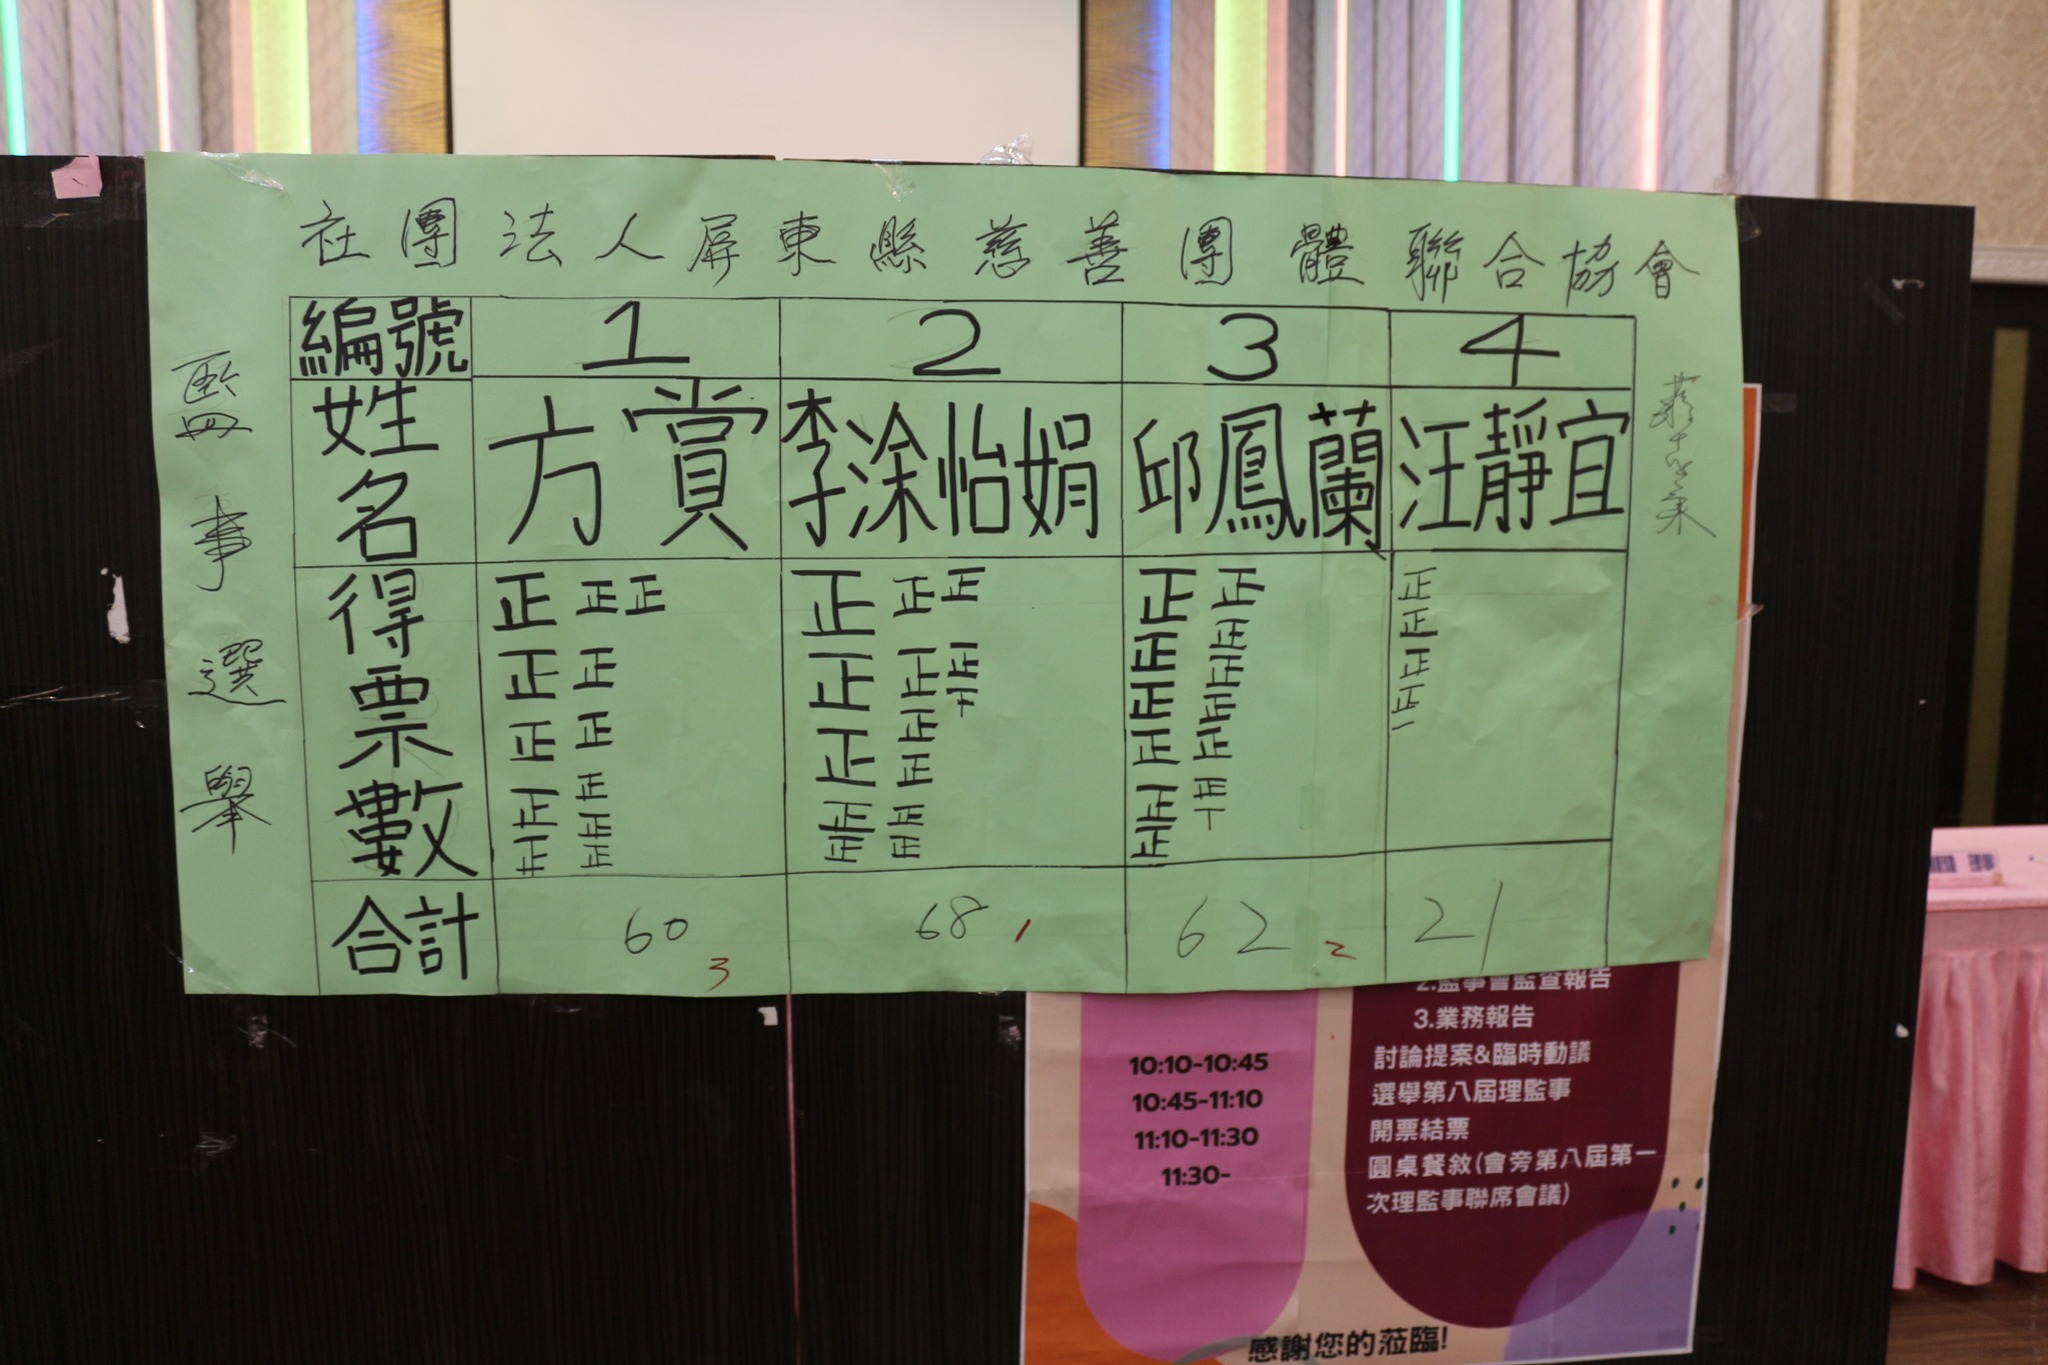 社團法人屏東縣慈善團體聯合協會
監事選舉
編號 1 2 3 4
姓名 方賞 李涂怡娟 邱鳳蘭 汪靜宜
得票數 正正正正正正正正正正正正 正正正正正正正正正正正正正 正正正正正正正正正正正正 正正正正一
合計 60 3 68 1 62 2 21
2.監事會監查報告
3.業務報告
10:10-10:45 討論提案&臨時動議
10:45-11:10 選舉第八屆理監事
11:10-11:30 開票結票
11:30- 圓桌餐敘(會旁第八屆第一
次理監事聯席會議)
感謝您的蒞臨!